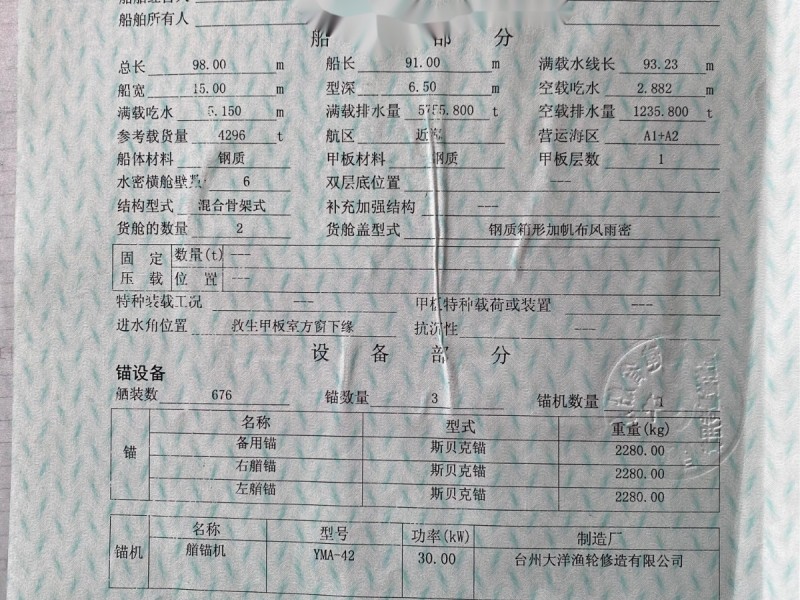 船舶所有人
船 部 分
总长 98.00 m 船长 91.00 m 满载水线长 93.23 m
船宽 15.00 m 型深 6.50 m 空载吃水 2.882 m
满载吃水 5.150 m 满载排水量 5755.800 t 空载排水量 1235.800 t
参考载货量 4296 t 航区 近海 营运海区 A1+A2
船体材料 钢质 甲板材料 钢质 甲板层数 1
水密横舱壁数 6 双层底位置 ---
结构型式 混合骨架式 补充加强结构 ---
货舱的数量 2 货舱盖型式 钢质箱形加帆布风雨密
固定 数量(t) ---
压载 位置 ---
特种装载工况 --- 甲板特种载荷或装置 ---
进水角位置 救生甲板室方窗下缘 抗沉性 ---
设 备 部 分
锚设备
舾装数 676 锚数量 3 锚机数量 1
名称 型式 重量(kg)
锚 备用锚 斯贝克锚 2280.00
右艏锚 斯贝克锚 2280.00
左艏锚 斯贝克锚 2280.00
名称 型号 功率(kW) 制造厂
锚机 艏锚机 YMA-42 30.00 台州大洋渔轮修造有限公司